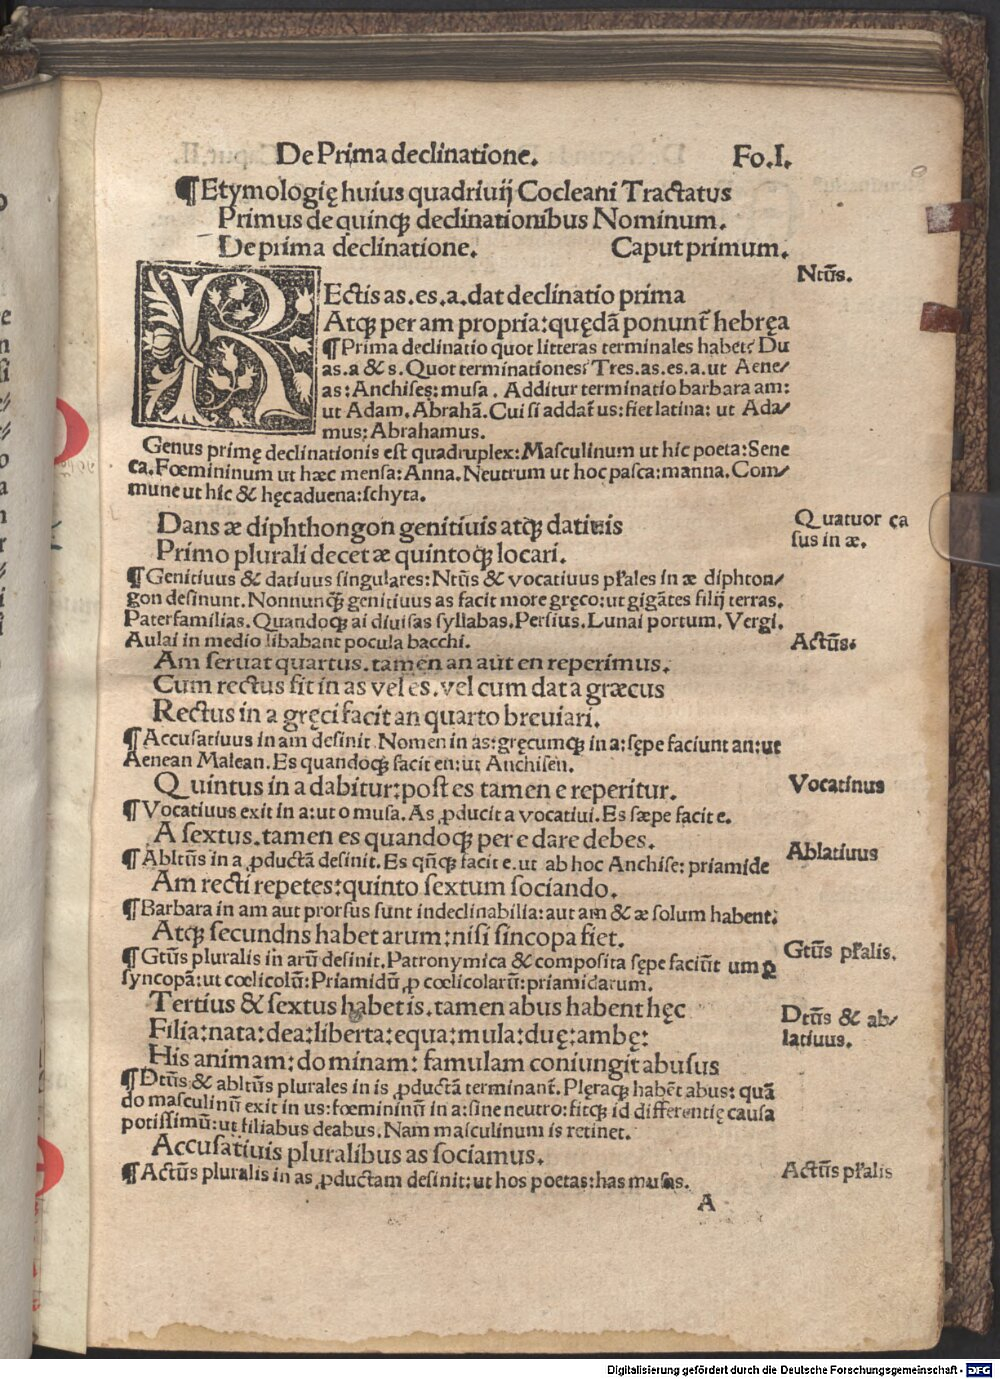 De Prima declinatione. Fo.I.
¶Etymologię huius quadriuij Cocleani Tractatus
Primus de quinqꝫ declinationibus Nominum.
De prima declinatione. Caput primum.
Ntūs.
REctis as.es.a.dat declinatio prima
Atqꝫ per am propria:quędā ponunt̄ hebręa
¶Prima declinatio quot litteras terminales habet? Du
as.a & s. Quot terminationes? Tres.as.es.a.ut Aene/
as:Anchises:musa. Additur terminatio barbara am:
ut Adam.Abrahā.Cui si addat̄ us:fiet latina: ut Ada/
mus:Abrahamus.
Genus primę declinationis est quadruplex:Masculinum ut hic poeta:Sene
ca.Fœmininum ut hæc mensa:Anna.Neutrum ut hoc pasca:manna.Com/
mune ut hic & hęcaduena:schyta.
Dans æ diphthongon genitiuis atqꝫ datiuis
Quatuor ca
Primo plurali decet æ quintoqꝫ locari.
sus in æ.
¶Genitiuus & datiuus singulares:Ntūs & vocatiuus pl̄ales in æ diphton/
gon desinunt.Nonnunqꝫ genitiuus as facit more gręco:ut gigātes filij terras.
Paterfamilias.Quandoqꝫ ai diuisas syllabas.Persius.Lunai portum.Vergi.
Aulai in medio libabant pocula bacchi.
Actūs.
Am seruat quartus.tamen an aut en reperimus.
Cum rectus fit in as vel es.vel cum dat a græcus
Rectus in a gręci facit an quarto breuiari.
¶Accusatiuus in am desinit.Nomen in as:gręcumqꝫ in a:sępe faciunt an:ut
Aenean Malean.Es quandoqꝫ facit en:ut Anchisen.
Quintus in a dabitur:post es tamen e reperitur.
Vocatinus
¶Vocatiuus exit in a:ut o musa.As ꝓducit a vocatiui.Es sæpe facit e.
A sextus.tamen es quandoqꝫ per e dare debes.
Ablatiuus
¶Abltūs in a ꝓductā desinit.Es qn̄qꝫ facit e.ut ab hoc Anchise: priamide
Am recti repetes:quinto sextum sociando.
¶Barbara in am aut prorsus sunt indeclinabilia:aut am & æ solum habent:
Atqꝫ secundns habet arum:nisi sincopa fiet.
¶Gtūs pluralis in arū desinit.Patronymica & composita sępe faciūt um ꝑ
Gtūs pl̄alis.
syncopā:ut cœlicolū:Priamidū ꝓ cœlicolarū:priamidarum.
Tertius & sextus habet is.tamen abus habent hęc
Dtūs & ab/
Filia:nata:dea:liberta:equa:mula:duę:ambę:
latiuus.
His animam:dominam: famulam coniungit abusus
¶Dtūs & abltūs plurales in is ꝓductā terminant̄. Plęraqꝫ habēt abus: quā
do masculinū exit in us:fœmininū in a:sine neutro:fitqꝫ id differentię causa
potissimū:ut filiabus deabus.Nam masculinum is retinet.
Accusatiuis pluralibus as sociamus.
¶Actūs pluralis in as ꝓductam desinit:ut hos poetas:has musas.
Actūs pl̄alis
A
Digitalisierung gefördert durch die Deutsche Forschungsgemeinschaft - DFG